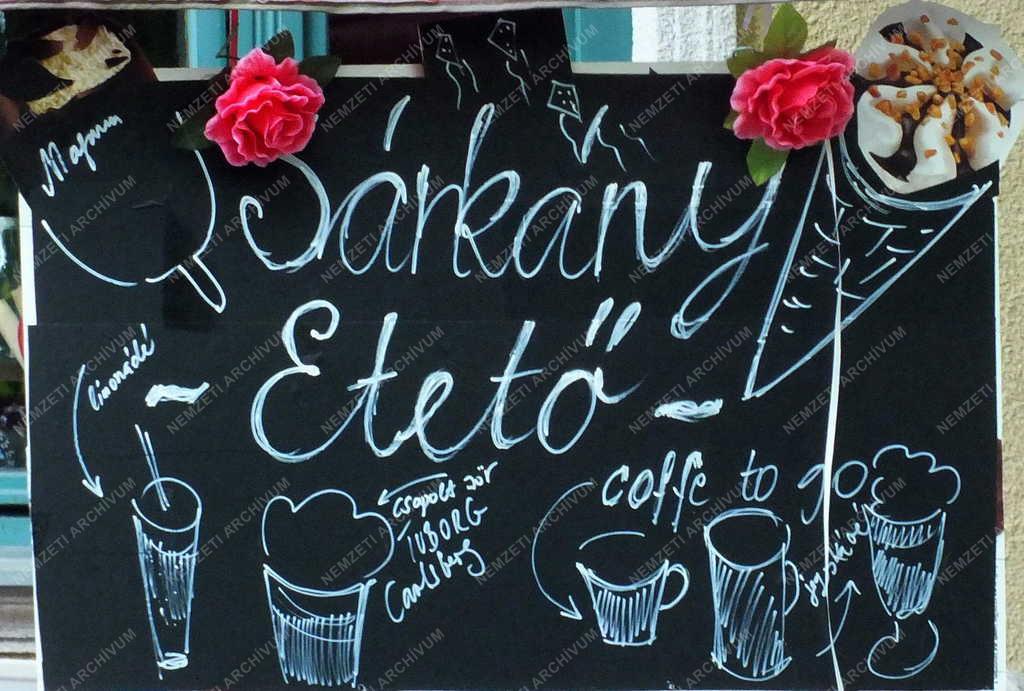 Sárkány
Etető
limonádé
csapolt sör
TUBORG
Carlsberg
coffe to go
jegeskávé
NEMZETI ARCHÍVUM